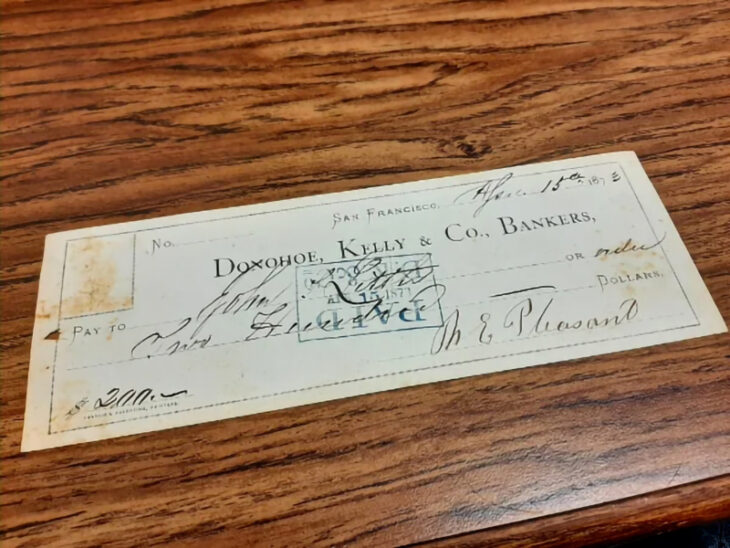 No.
San Francisco, Apr. 15th 1873
Donohoe, Kelly & Co., Bankers,
Pay to John or order
Two Hundred Dollars.
$200.—
M E Pleasant
D. K. & CO.
15 1873
PAID